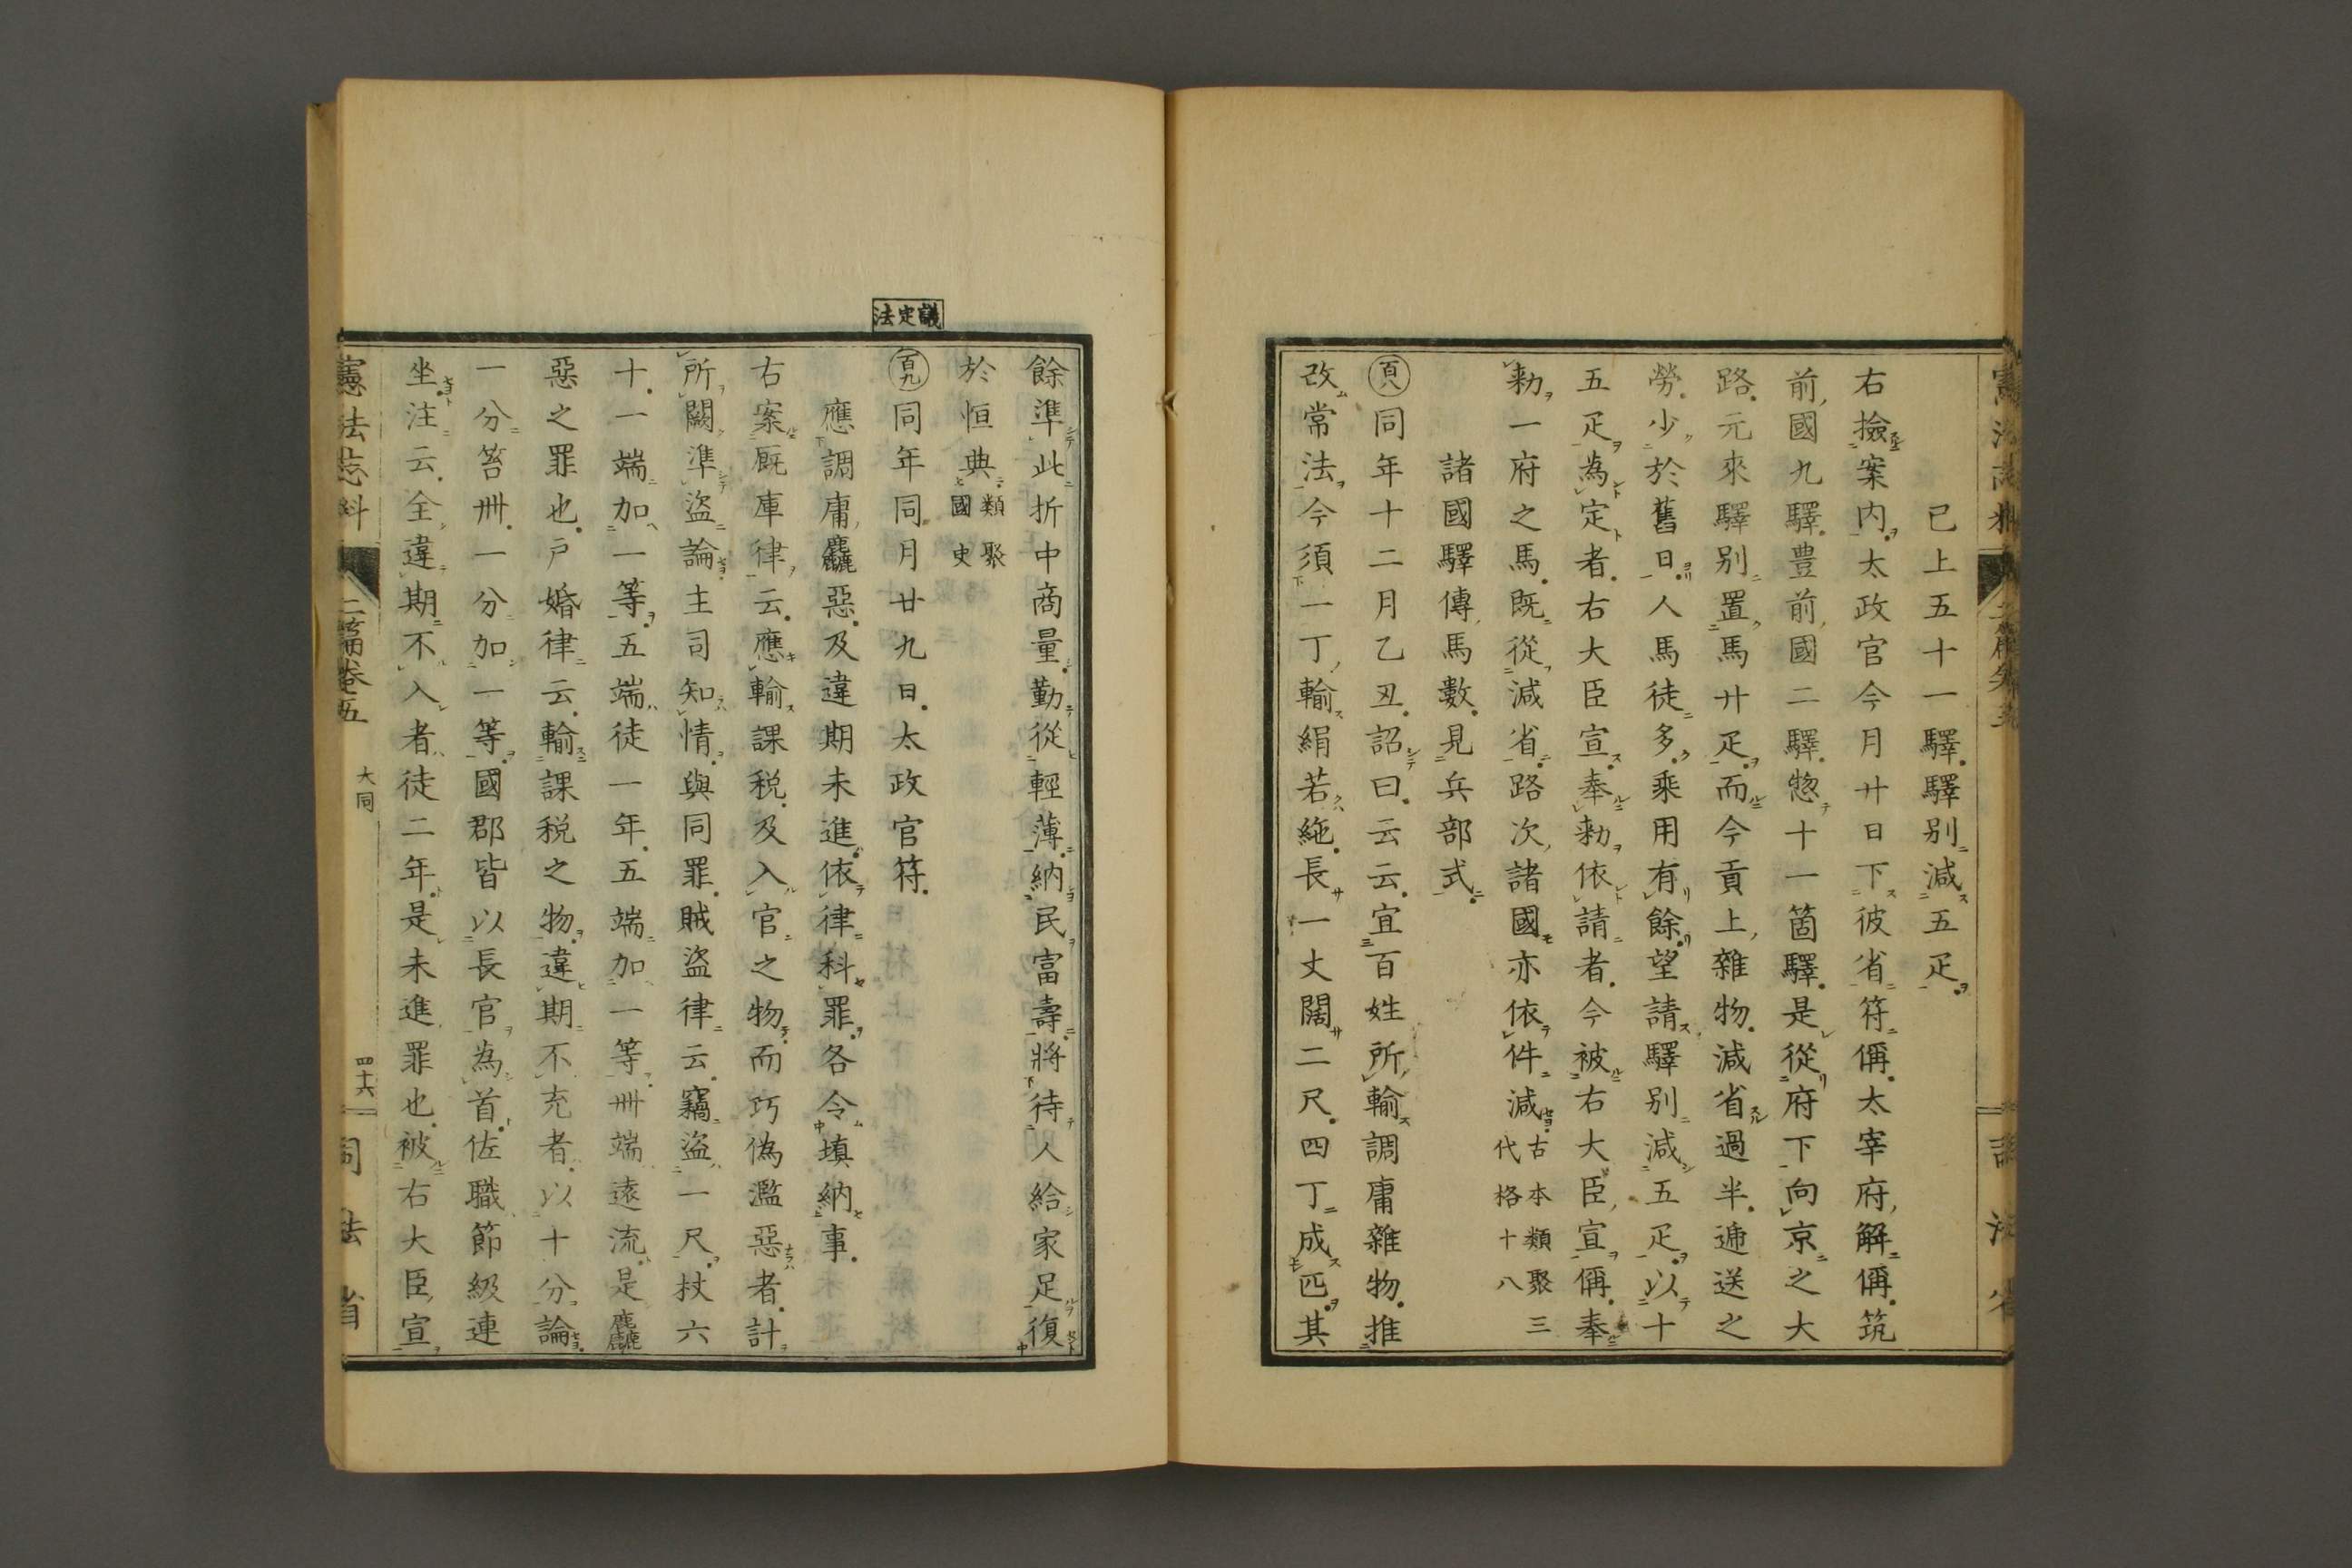 已上五十一驛驛別減五疋
右撿案内太政官今月廿日下彼省符偁太宰府解偁筑
前國九驛豊前國二驛惣十一箇驛是從府下向京之大
路元來驛別置馬廿疋而今貢上雜物減省過半逓送之
勞少於舊日人馬徒多乘用有餘望請驛別減五疋以十
五疋為定者右大臣宣奉勅依請者今被右大臣宣偁奉
勅一府之馬既從減省路次諸國亦依件減古本類聚三
代格十八
諸國驛傳馬數見兵部式
百八同年十二月乙丑詔曰云云宜百姓所輸調庸雜物推
改常法今須一丁輸絹若絁長一丈闊二尺四丁成匹其
議定法
餘準此折中商量勤從輕薄納民富壽將待人給家足復
於恒典類聚
國史
百九同年同月廿九日太政官符
應調庸麤惡及違期未進依律科罪各令塡納事
右案厩庫律云應輸課税及入官之物而巧偽濫惡者計
所闕準盜論主司知情與同罪賊盜律云竊盜一尺杖六
十一端加一等五端徒一年五端加一等卌端遠流是麤
惡之罪也戸婚律云輸課税之物違期不充者以十分論
一分笞卌一分加一等國郡皆以長官為首佐職節級連
坐注云全違期不入者徒二年是未進罪也被右大臣宣
憲法志料 二篇卷五 大同 四十六 司法省